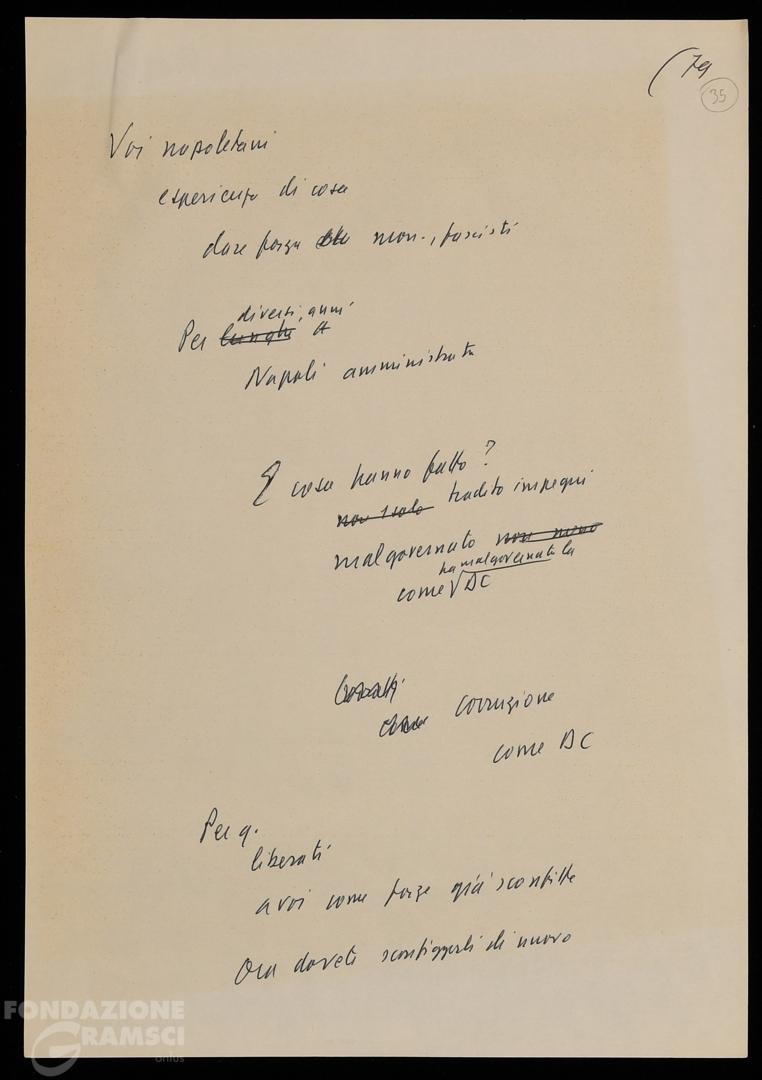 (79
35
Voi napoletani
esperienza di cosa
dare forza mon., fascisti
diversi anni
Per lunghi
Napoli amministrata
E cosa hanno fatto?
non solo tradito impegni
malgovernato non meno
ha malgovernato la
come √ DC
corruzione
come DC
Per q.
liberati
a voi come forze già sconfitte
Ora dovete sconfiggerli di nuovo
FONDAZIONE
GRAMSCI
onlus